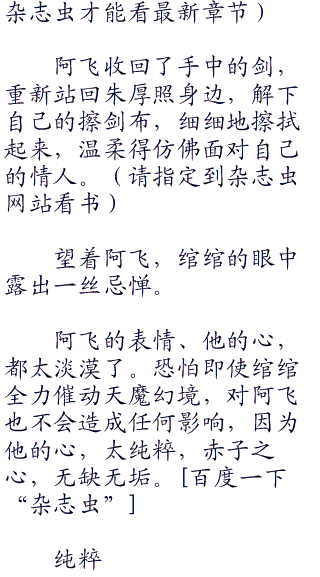 杂志虫才能看最新章节）
阿飞收回了手中的剑，
重新站回朱厚照身边，解下
自己的擦剑布，细细地擦拭
起来，温柔得仿佛面对自己
的情人。（请指定到杂志虫
网站看书）
望着阿飞，绾绾的眼中
露出一丝忌惮。
阿飞的表情、他的心，
都太淡漠了。恐怕即使绾绾
全力催动天魔幻境，对阿飞
也不会造成任何影响，因为
他的心，太纯粹，赤子之
心，无缺无垢。[百度一下
“杂志虫”]
纯粹